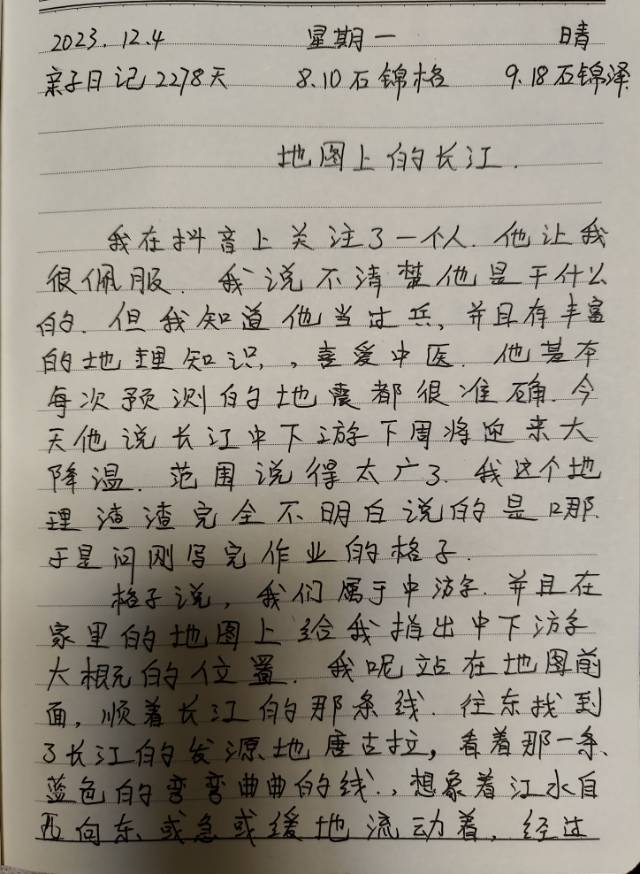 2023.12.4 星期一 晴
亲子日记2278天 8.10石锦格 9.18石锦泽
地图上的长江.
我在抖音上关注了一个人.他让我
很佩服.我说不清楚他是干什么
的.但我知道他当过兵,并且有丰富
的地理知识,,喜爱中医.他基本
每次预测的地震都很准确.今
天他说长江中下游下周将迎来大
降温.范围说得太广了.我这个地
理渣渣完全不明白说的是哪.
于是问刚写完作业的格子.
格子说,我们属于中游.并且在
家里的地图上给我指出中下游
大概的位置.我呢站在地图前
面,顺着长江的那条线.往东找到
了长江的发源地唐古拉,看着那一条
蓝色的弯弯曲曲的线.,想象着江水自
西向东或急或缓地流动着,经过